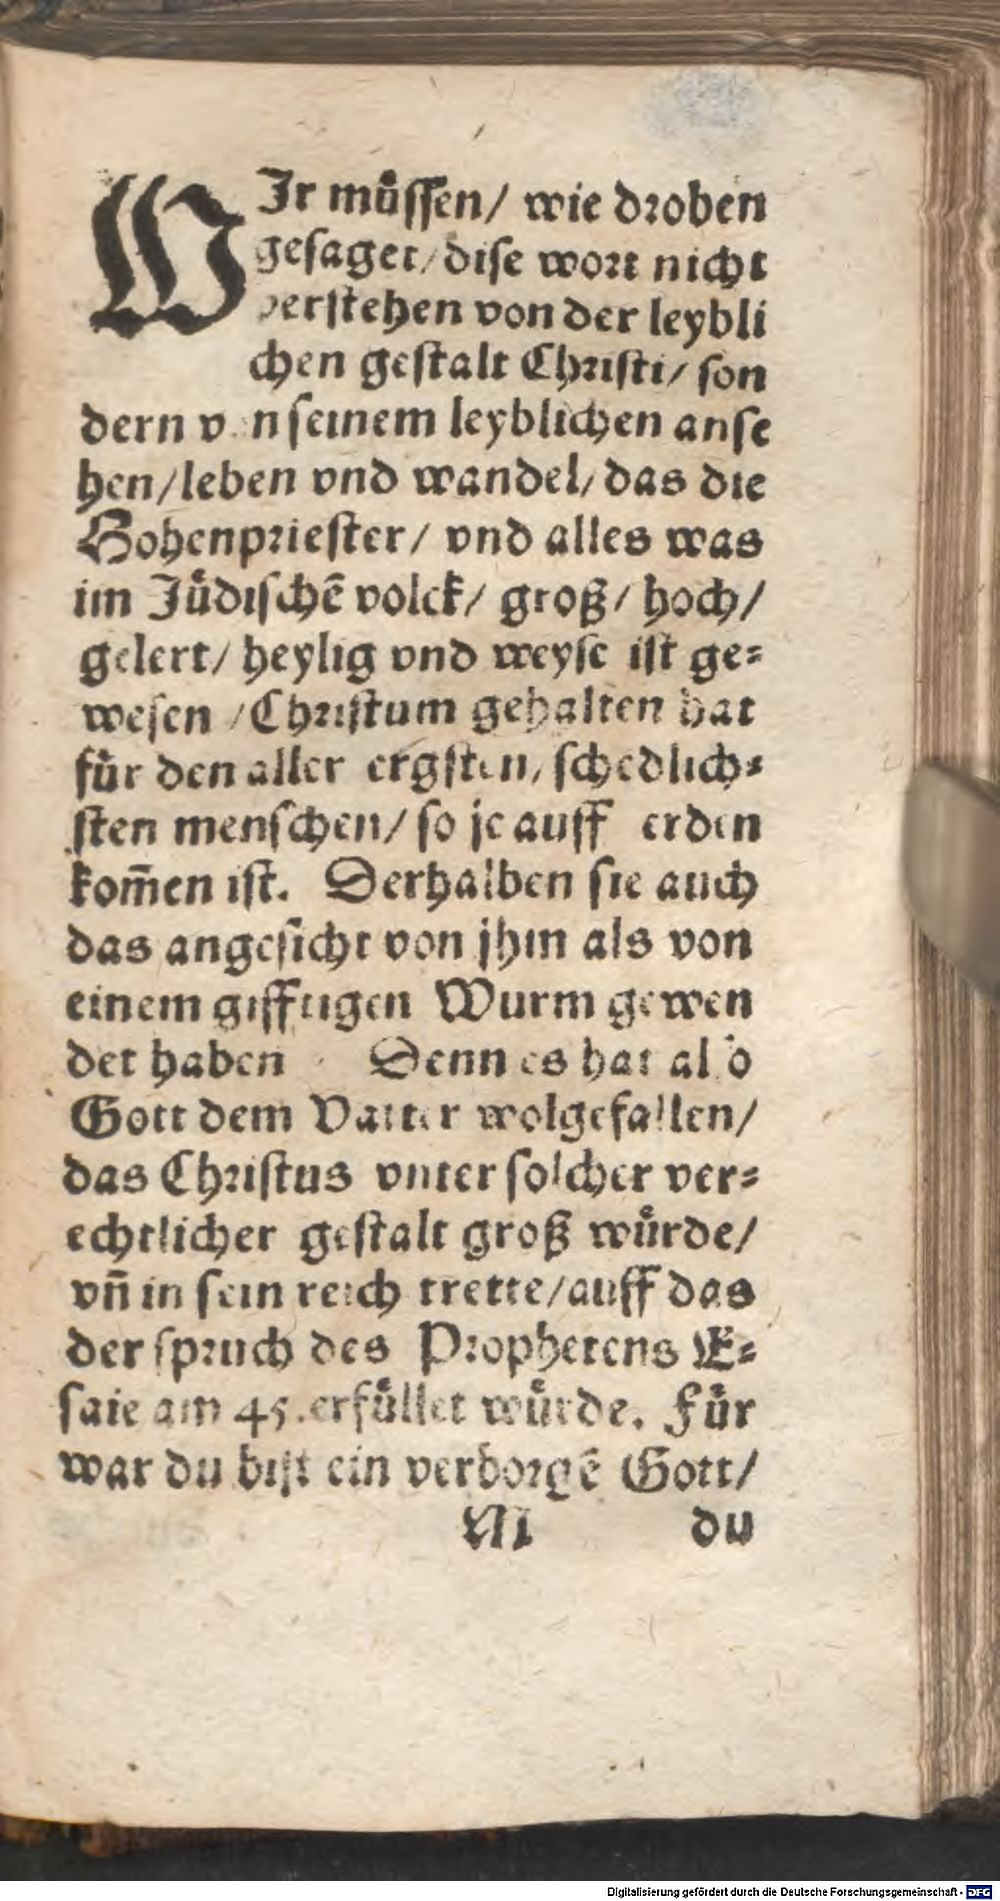 WIr muͤſſen/ wie droben
geſaget/ diſe wort nicht
verſtehen von der leybli
chen geſtalt Chriſti/ ſon
dern von ſeinem leyblichen anſe
hen/ leben vnd wandel/ das die
Hohenprieſter/ vnd alles was
im Juͤdiſchē volck/ groß/ hoch/
gelert/ heylig vnd weyſe iſt ge⸗
weſen /Chriſtum gehalten hat
fuͤr den aller ergſten/ ſchedlich⸗
ſten menſchen/ ſo je auff erden
kom̃en iſt. Derhalben ſie auch
das angeſicht von jhm als von
einem gifftigen Wurm gewen
det haben. Denn es hat alſo
Gott dem Vatter wolgefallen/
das Chriſtus vnter ſolcher ver⸗
echtlicher geſtalt groß wuͤrde/
vn̄ in ſein reich trette/ auff das
der ſpruch des Prophetens E⸗
ſaie am 45. erfuͤllet wuͤrde. Fuͤr
war du biſt ein verborgē Gott/
M du
Digitalisierung gefördert durch die Deutsche Forschungsgemeinschaft - DFG